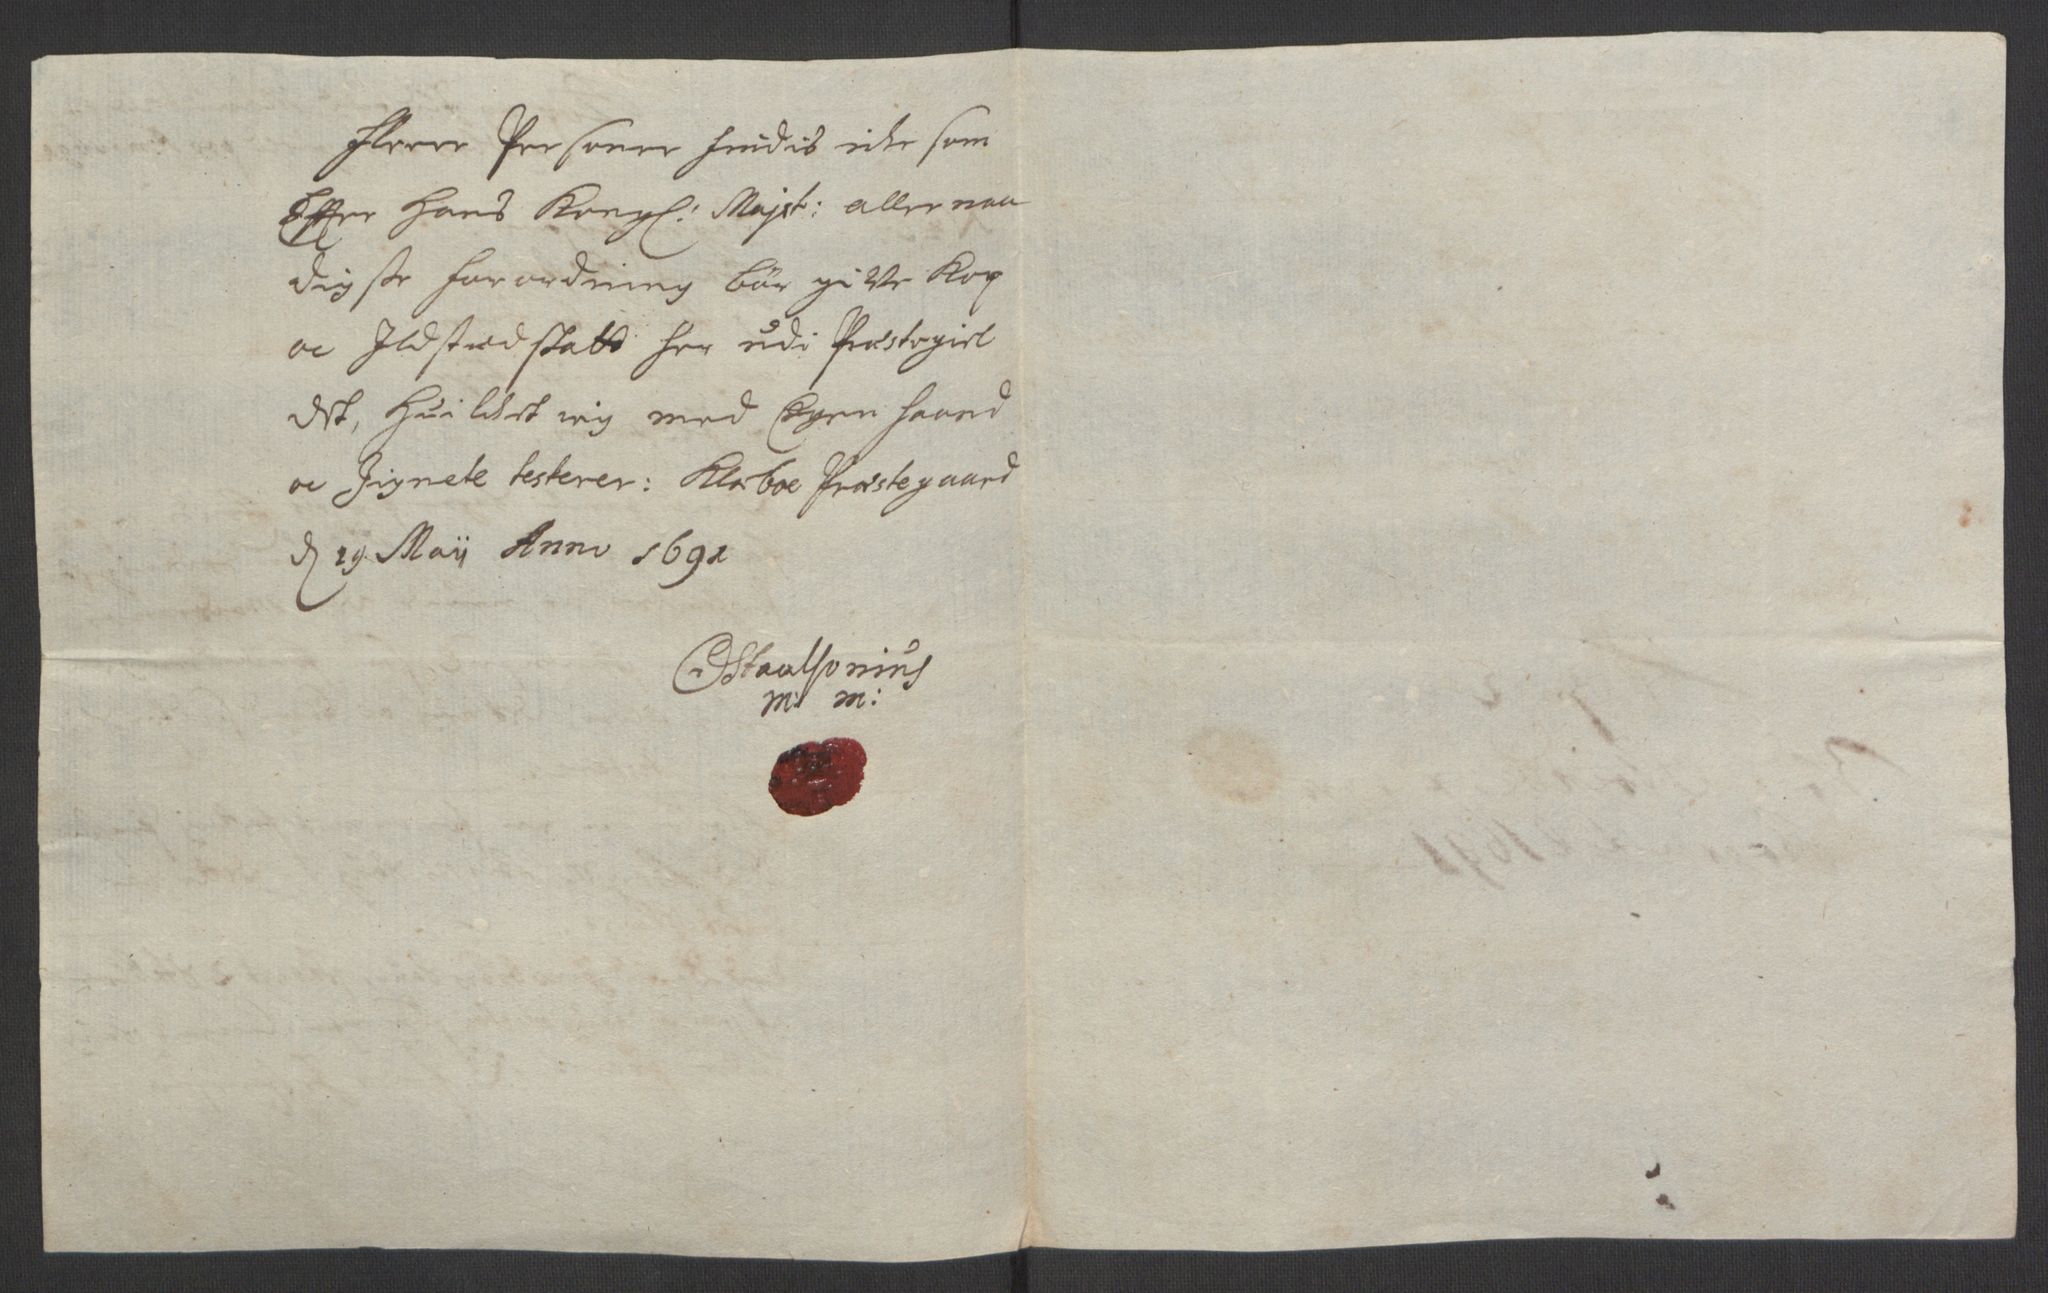 Fleere Personer findis icke som
Effter Hans Kongl: Majst: allernaa
digste forordning bör give Kop
oc Ildstædskatt her udi Præstegiel
det, Huilcket ieg med Egen haand
oc Signete testerer: Klæboe Præstegaard
d 29 Maij Anno 1691
Staalsonius
m: m: